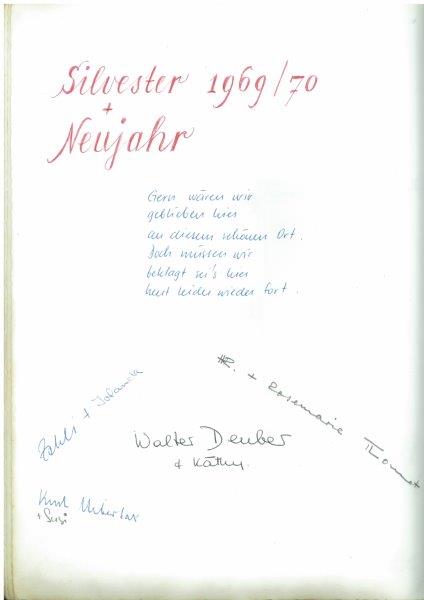 Silvester 1969/70
+
Neujahr
Gern wären wir
geblieben hier
an diesem schönen Ort.
Doch müssen wir
beklagt sei's hier
heut leider wieder fort.
+ Jolanda
R. + Rosemarie Thommet
Walter Deuber
+ Käthy.
Kurt
+ Susi